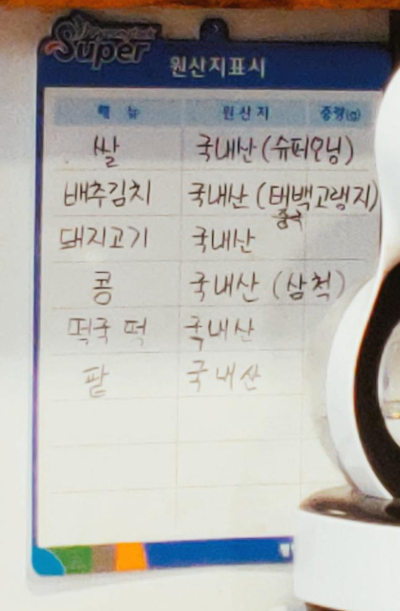 Super
원산지표시
메 뉴 원산지 중량(g)
쌀 국내산 (슈퍼오닝)
배추김치 국내산 (태백고랭지)
돼지고기 국내산
콩 국내산 (삼척)
떡국 떡 국내산
팥 국내산